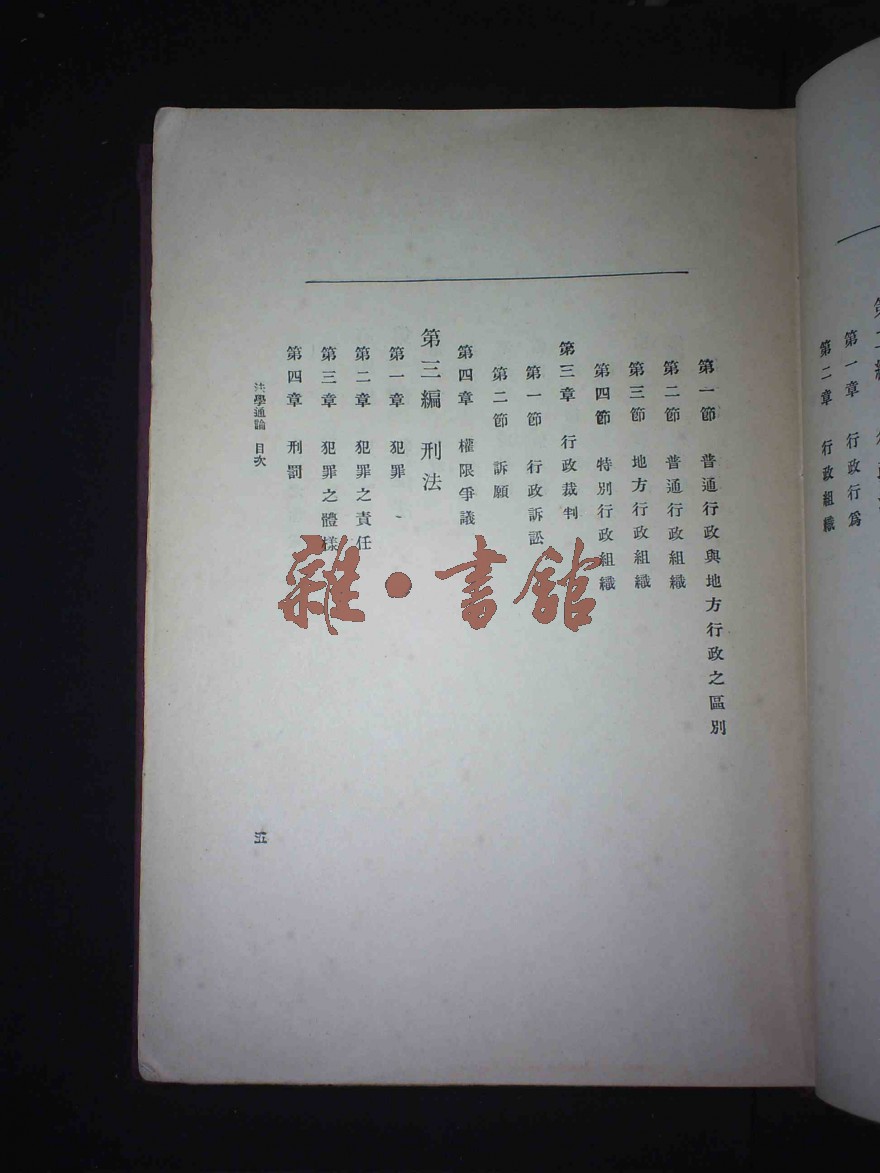 第一節 普通行政與地方行政之區別
第二節 普通行政組織
第三節 地方行政組織
第四節 特別行政組織
第三章 行政裁判
第一節 行政訴訟
第二節 訴願
第四章 權限爭議
第三編 刑法
第一章 犯罪
第二章 犯罪之責任
第三章 犯罪之體樣
第四章 刑罰
法學通論 目次
五
雜·書館
第一章 行政行爲
第二章 行政組織